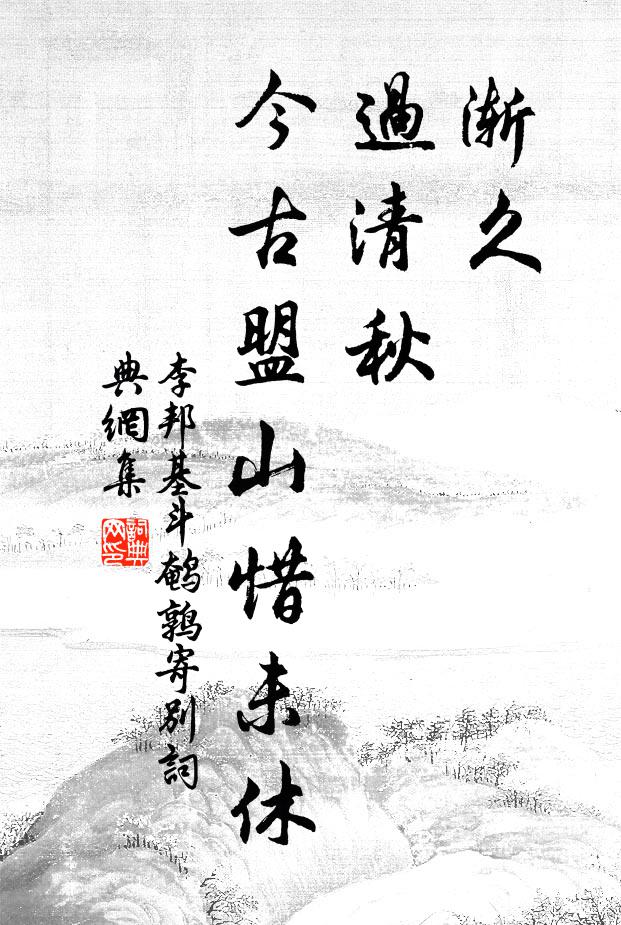 漸久
過清秋
今古盟山惜未休
李邦基斗鵪鶉寄別詞
典網集
詞典
网印